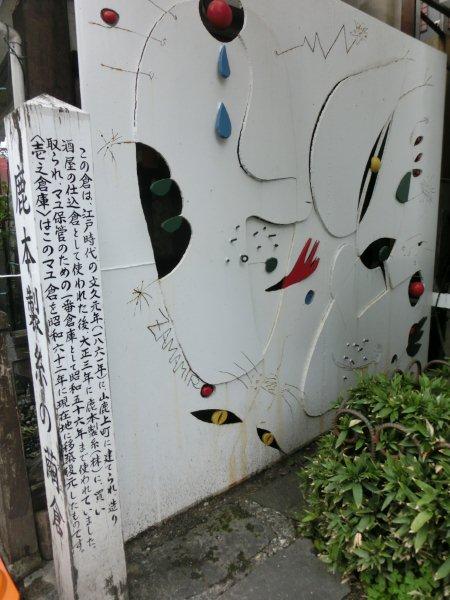 鹿本製糸の繭倉
この倉は、江戸時代の文久元年(一八六一年)に山鹿上町に建てられ、造り
酒屋の仕込倉として使われた後、大正三年に鹿本製糸(株)に、買い
取られ、マユ保管のための一番倉庫として昭和五十六年まで使われていました。
〈壱之倉庫〉はこのマユ倉を昭和六十三年に現在地に移築復元したものです。